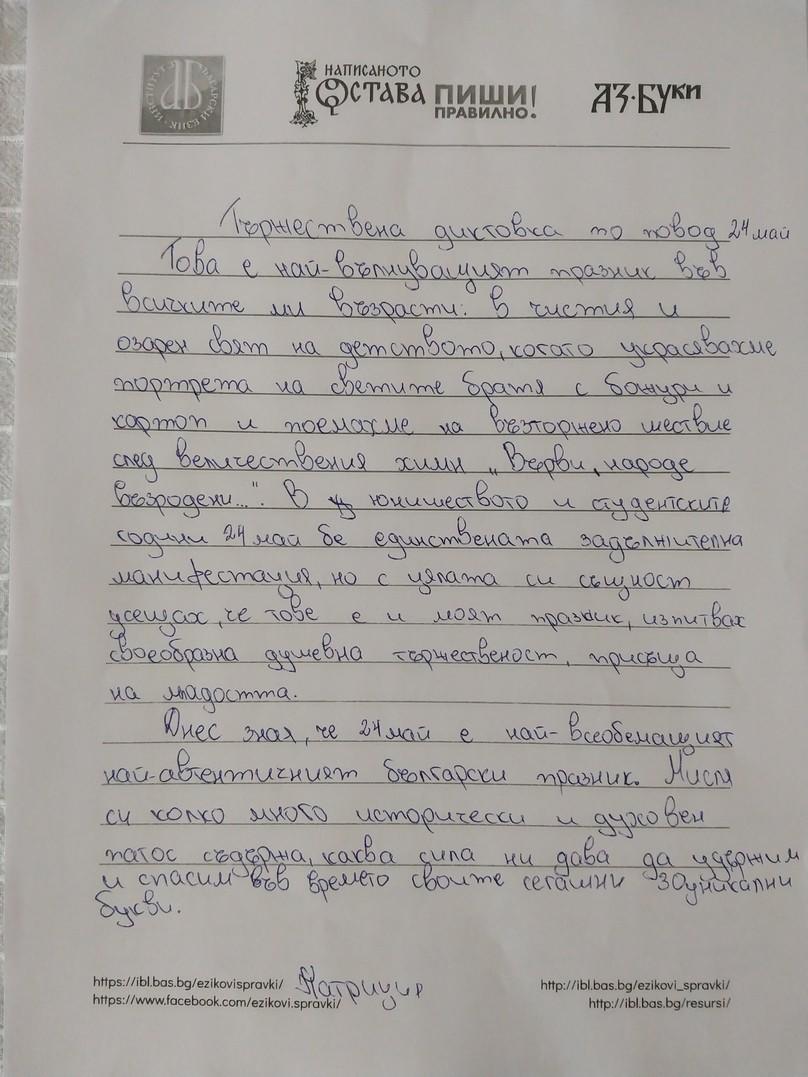 ИНСТИТУТ ЗА БЪЛГАРСКИ ЕЗИК
НАПИСАНОТО ОСТАВА ПИШИ ПРАВИЛНО!
АЗ·БУКИ
Тържествена диктовка по повод 24 май
Това е най-вълнуващият празник във
всичките ми възрасти: в чистия и
озарен свят на детството, когато украсявахме
портрета на светите братя с божури и
картоп и поемахме на възторжено шествие
след величествения химн „Върви, народе
възродени...". В юношеството и студентските
години 24 май бе единствената задължителна
манифестация, но с цялата си същност
усещах, че тове е и моят празник, изпитвах
своеобразна душевна тържественост, присъща
на младостта.
Днес зная, че 24 май е най-всеобемащият
най-автентичният български празник. Мисля
си колко много исторически и духовен
патос съдържа, каква сила ни дава да удържим
и спасим във времето своите сегашни 30 уникални
букви.
Патриция
https://ibl.bas.bg/ezikovispravki/
https://www.facebook.com/ezikovi.spravki/
http://ibl.bas.bg/ezikovi_spravki/
http://ibl.bas.bg/resursi/